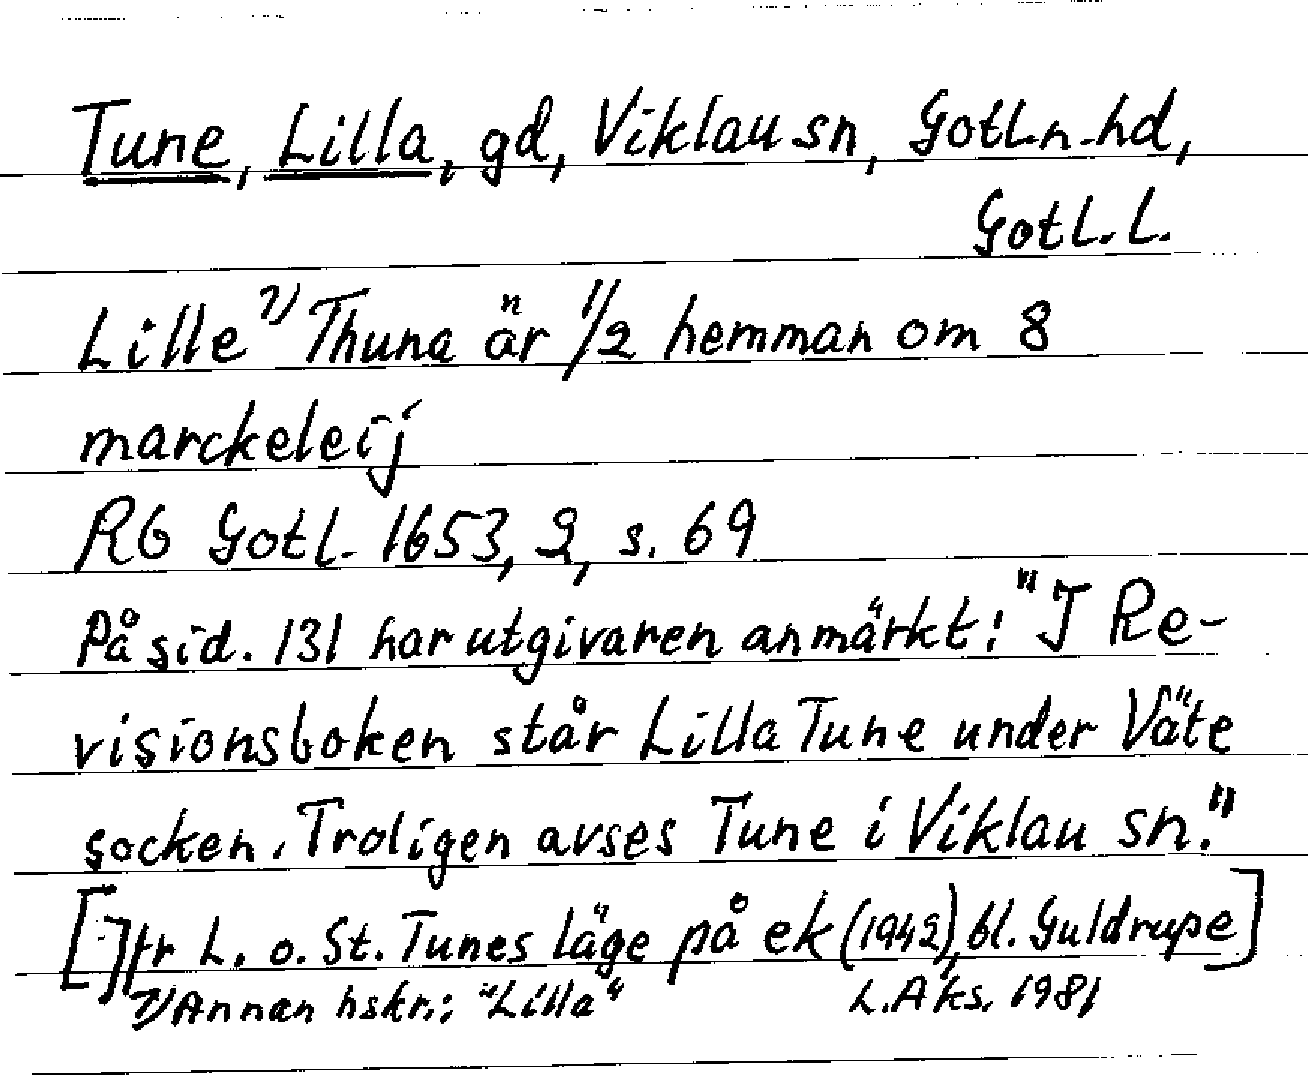 Tune, Lilla, gd, Viklau sn, Gotl.n.hd,
Gotl.L.
Lille ?) Thuna är 1/2 hemman om 8
marckeleij
RG Gotl. 1653, 2, s. 69
På sid. 131 har utgivaren anmärkt: "I Re-
visionsboken står Lilla Tune under Väte
socken. Troligen avses Tune i Viklau sn."
[Jfr L. o. St. Tunes läge på ek (1942), bl. Guldrupe]
?) Annan hskr.: "Lilla" L.Aks. 1981